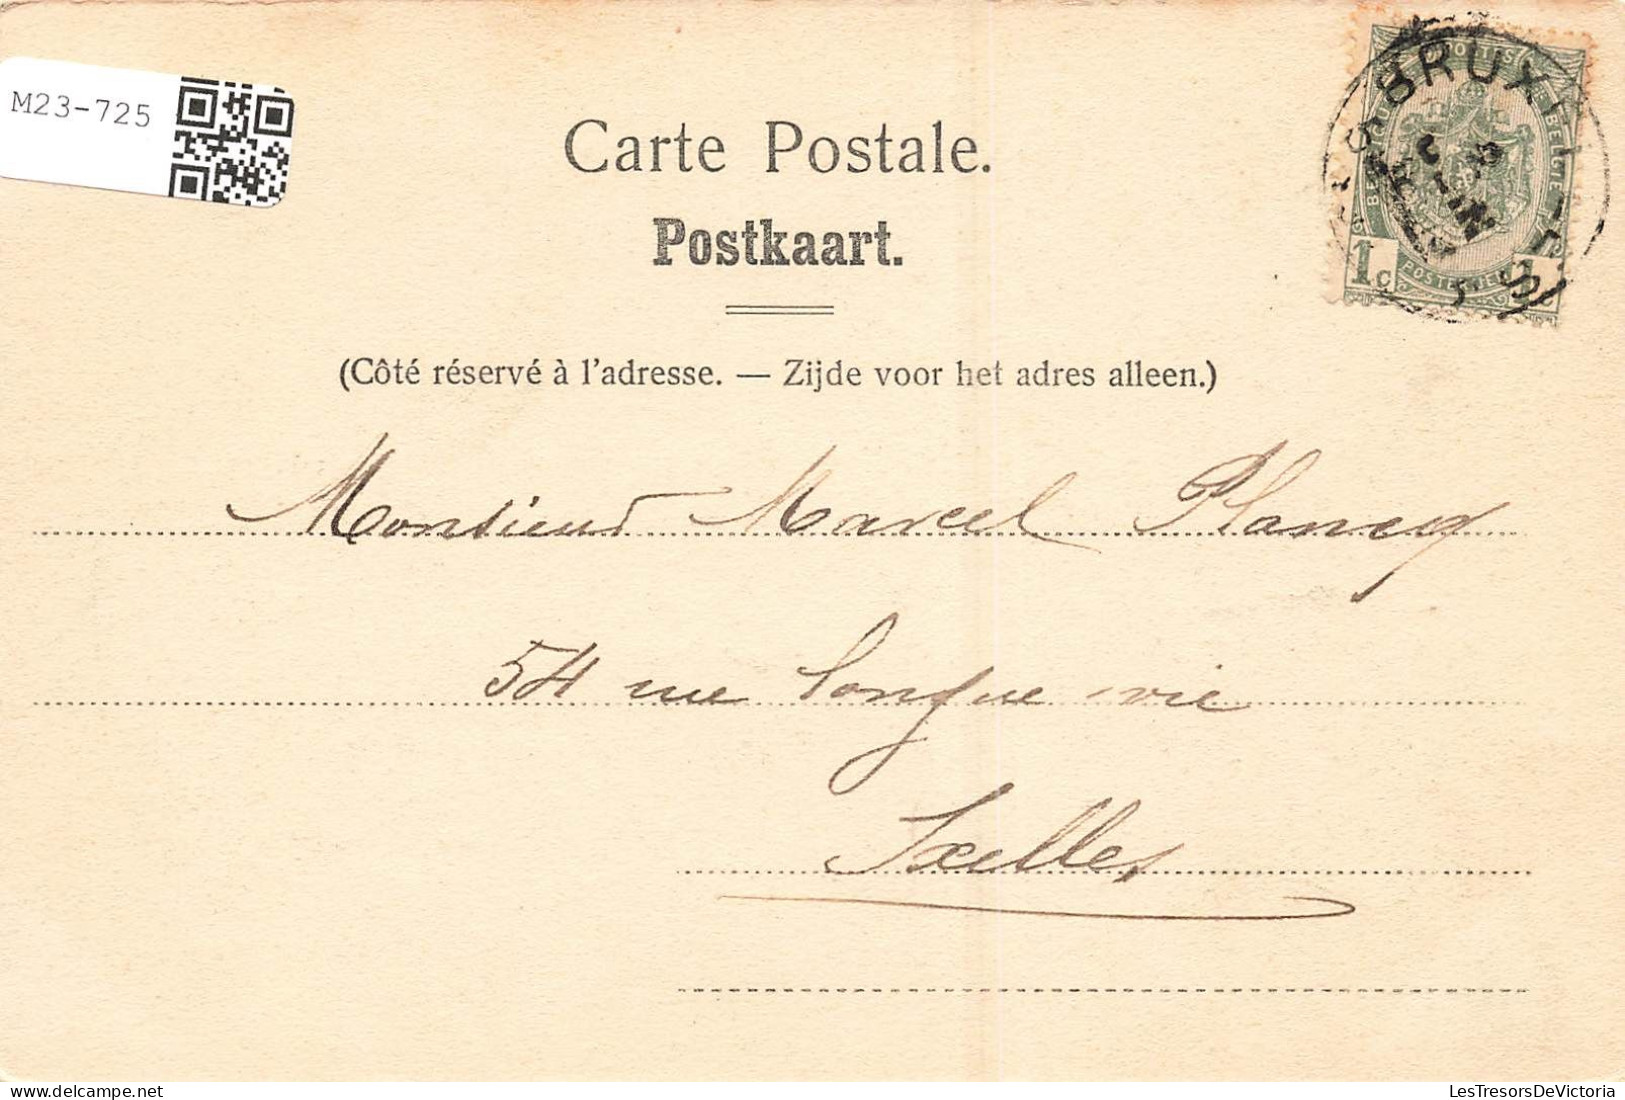 M23-725
Carte Postale.
Postkaart.
(Côté réservé à l'adresse. — Zijde voor het adres alleen.)
BRUXELLES
POSTES
BELGIQUE
BELGIE
1c
1c
POSTERIJEN
Monsieur Marcel Plancq
54 rue longue vie
Ixelles
delcampe.net
LesTresorsDeVictoria